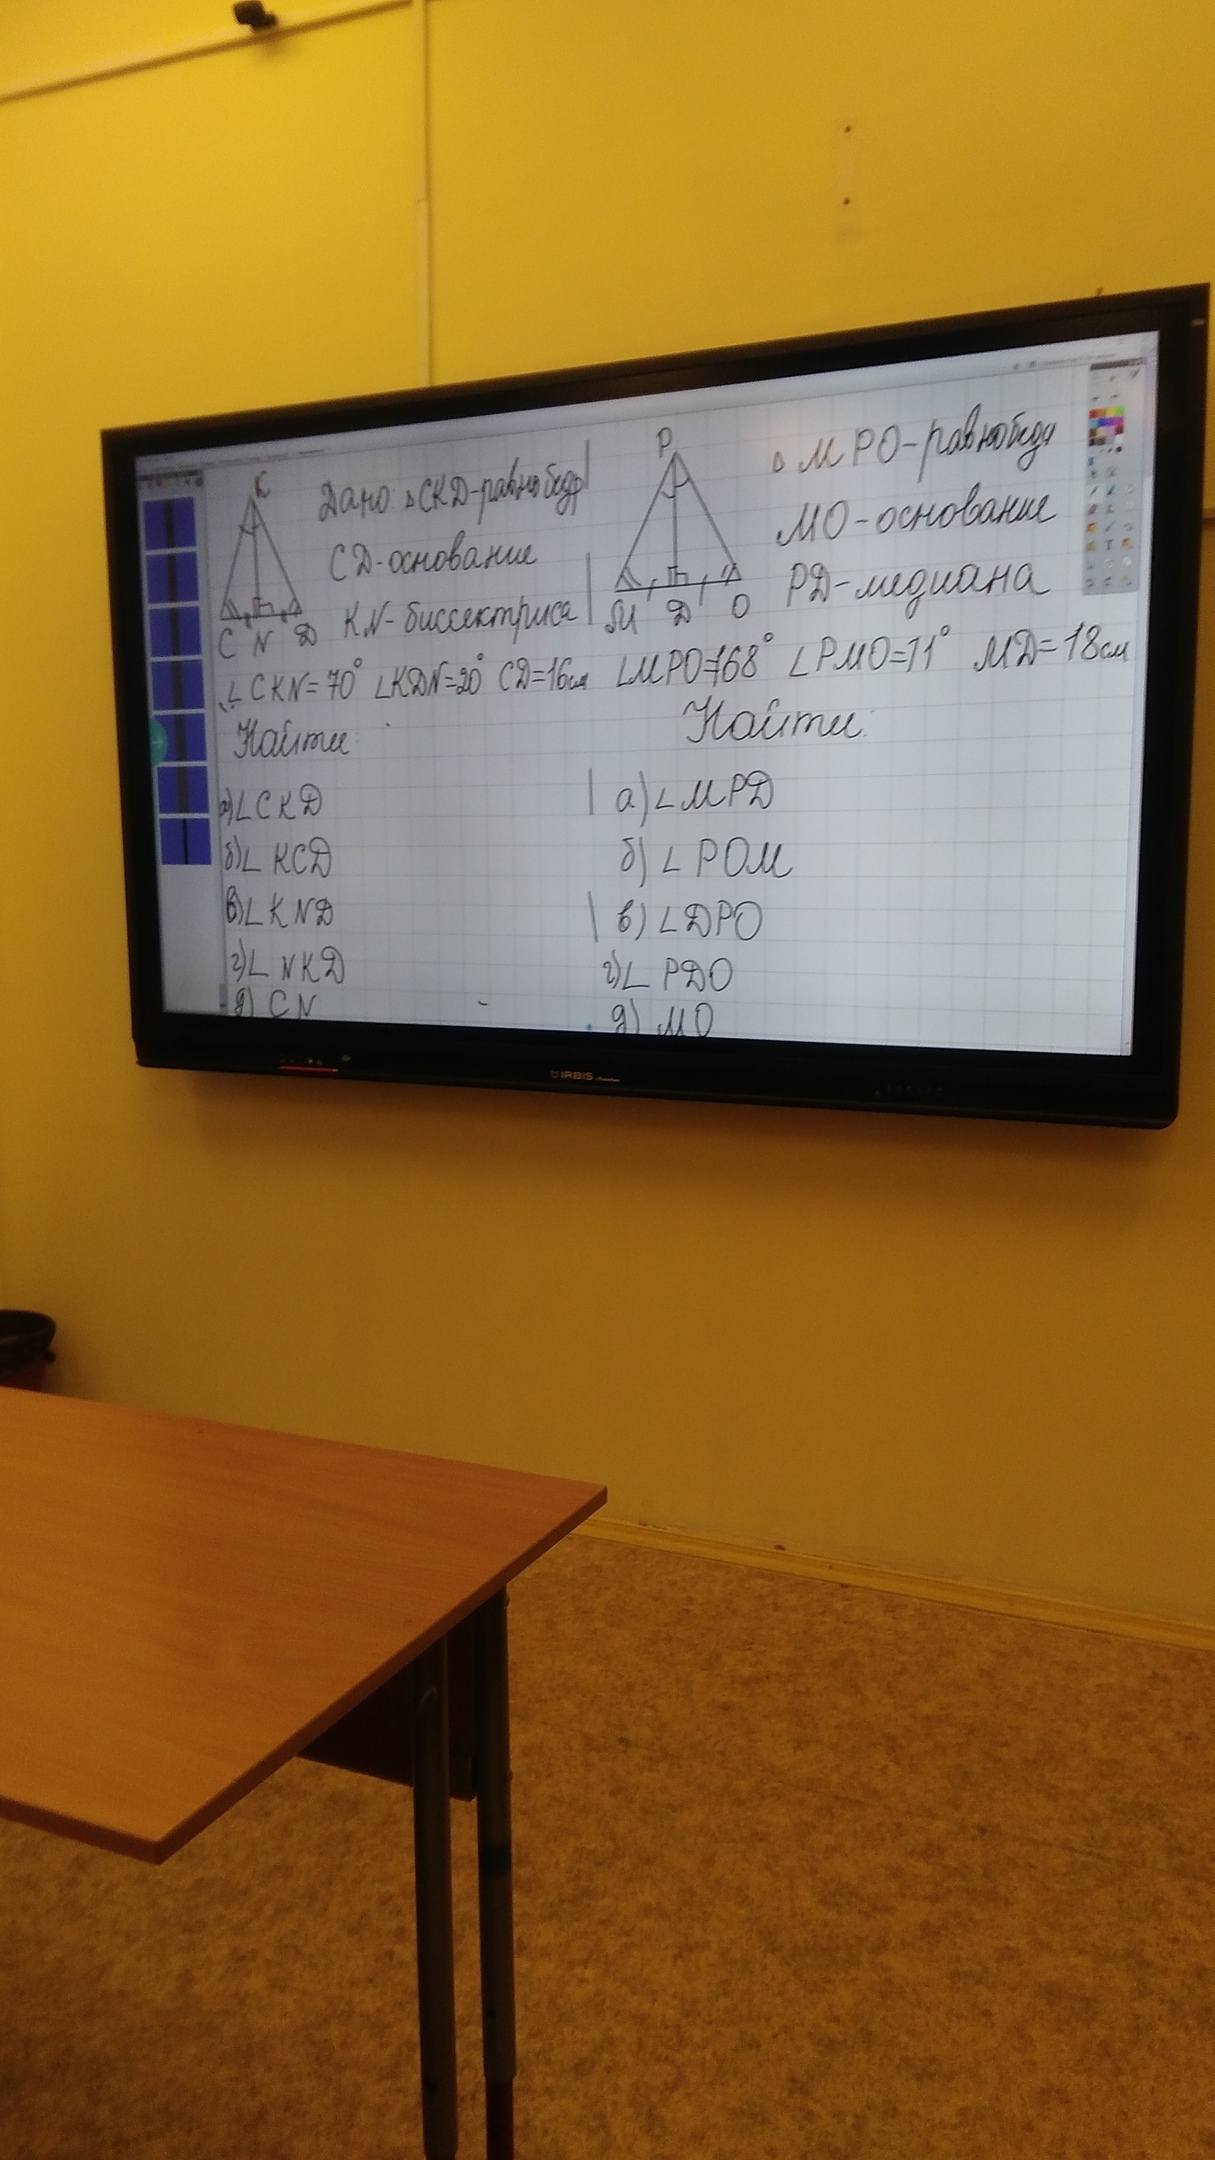 K
C N D
Дано: △CKD-равнобедр
CD-основание
KN-биссектриса
∠CKN=70° ∠KDN=20° CD=16см
Найти:
а)∠CKD
б)∠KCD
в)∠KND
г)∠NKD
д) CN
P
M D O
△ MPO-равнобед
MO-основание
PD-медиана
∠MPO=168° ∠PMO=71° MD=18см
Найти:
а)∠MPD
б)∠POM
в)∠DPO
г)∠PDO
д) MO
IRBIS